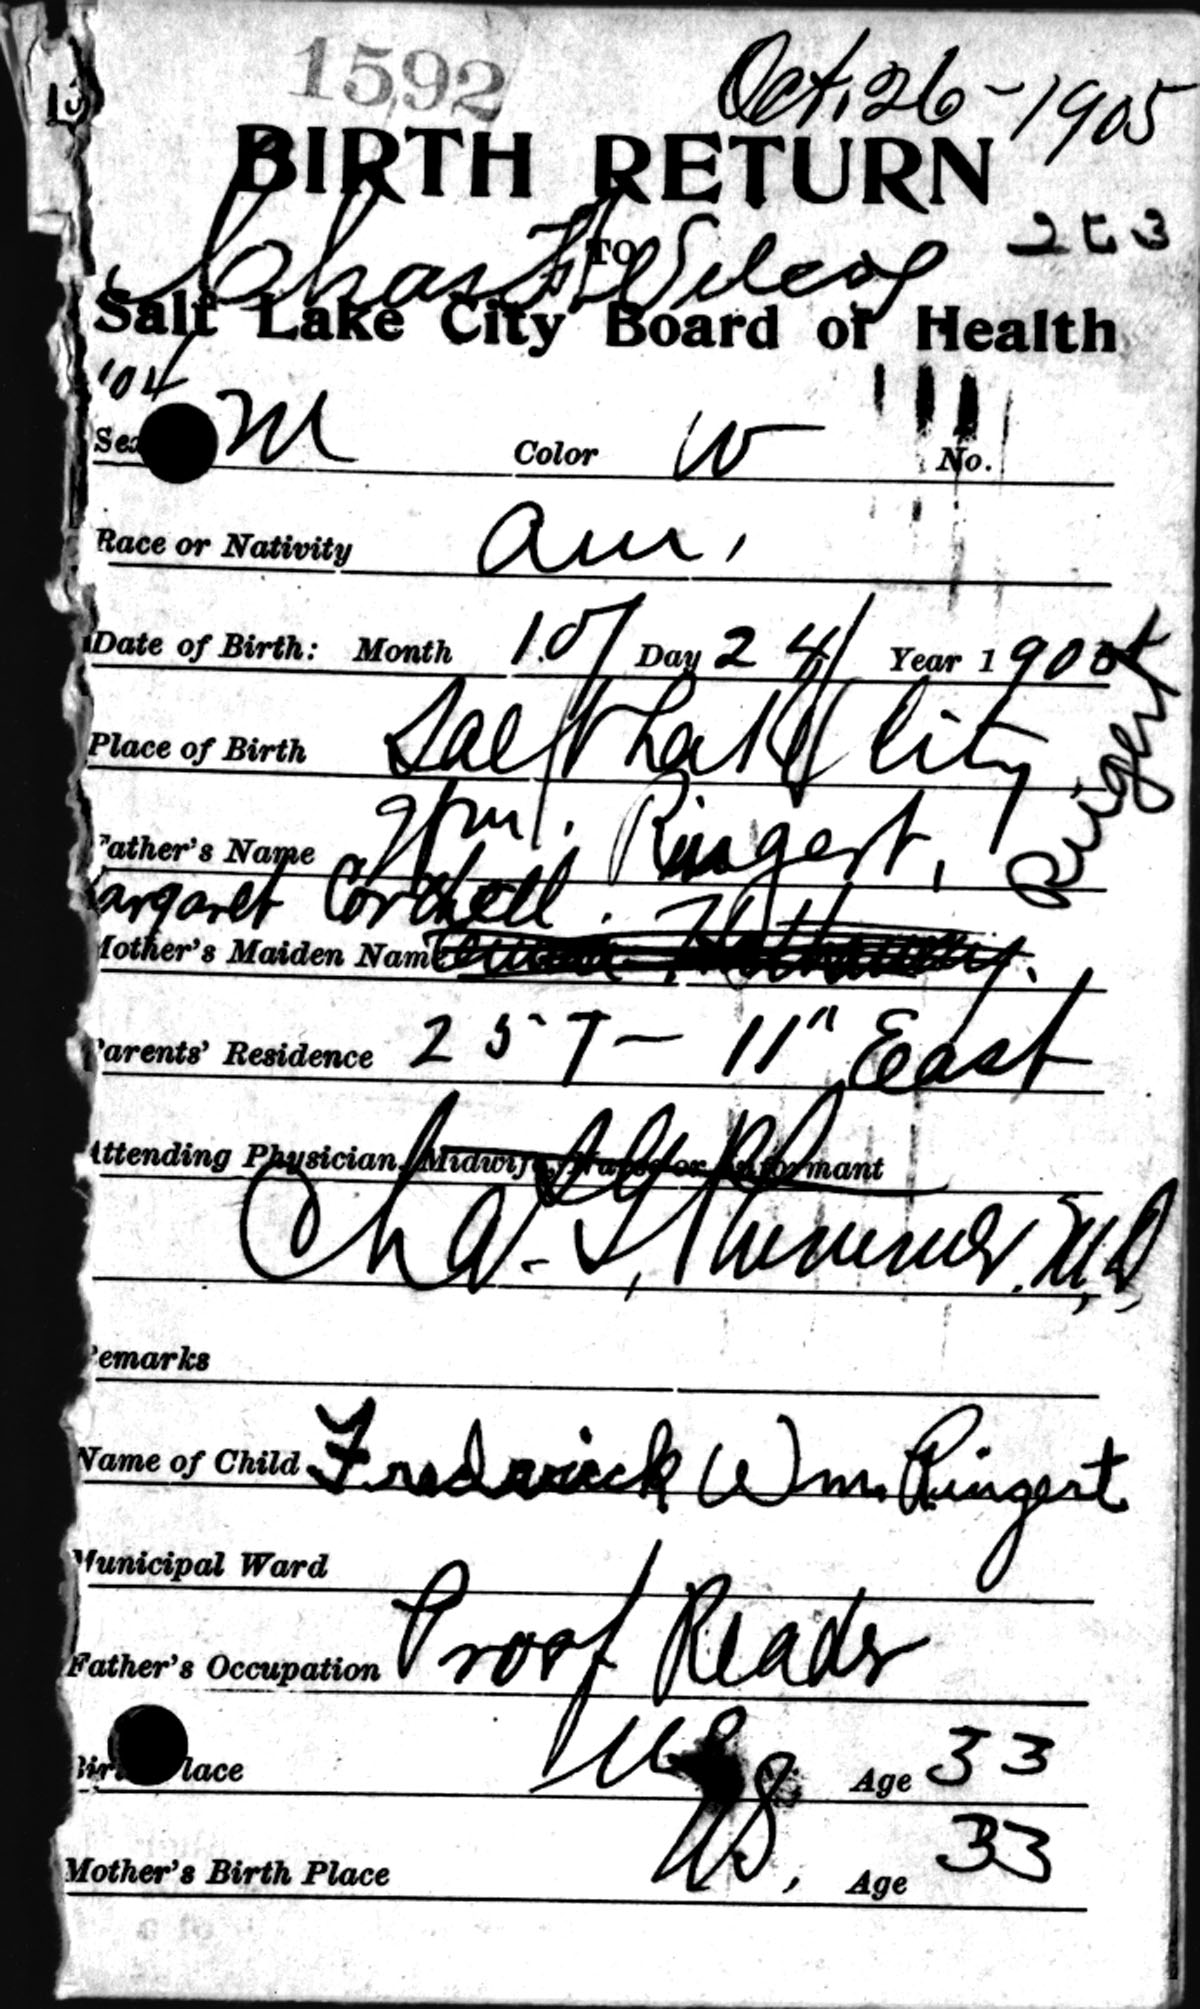 1592
Oct, 26-1905
BIRTH RETURN
TO
Chas F Wilcox
Salt Lake City Board of Health
'04
Sex M Color W No.
Race or Nativity Am,
Date of Birth: Month 10/ Day 24/ Year 1905
Place of Birth Salt Lake City
Father's Name Wm. Ringert,
Ringert
Margaret
Mother's Maiden Name
Parents' Residence 257- 11" East
Attending Physician, Midwife, Nurse or Informant
Chas. G. Plummer. M.D,
Remarks
Name of Child Frederick Wm. Ringert
Municipal Ward
Father's Occupation Proof Reader
Birth Place US Age 33
Mother's Birth Place US, Age 33